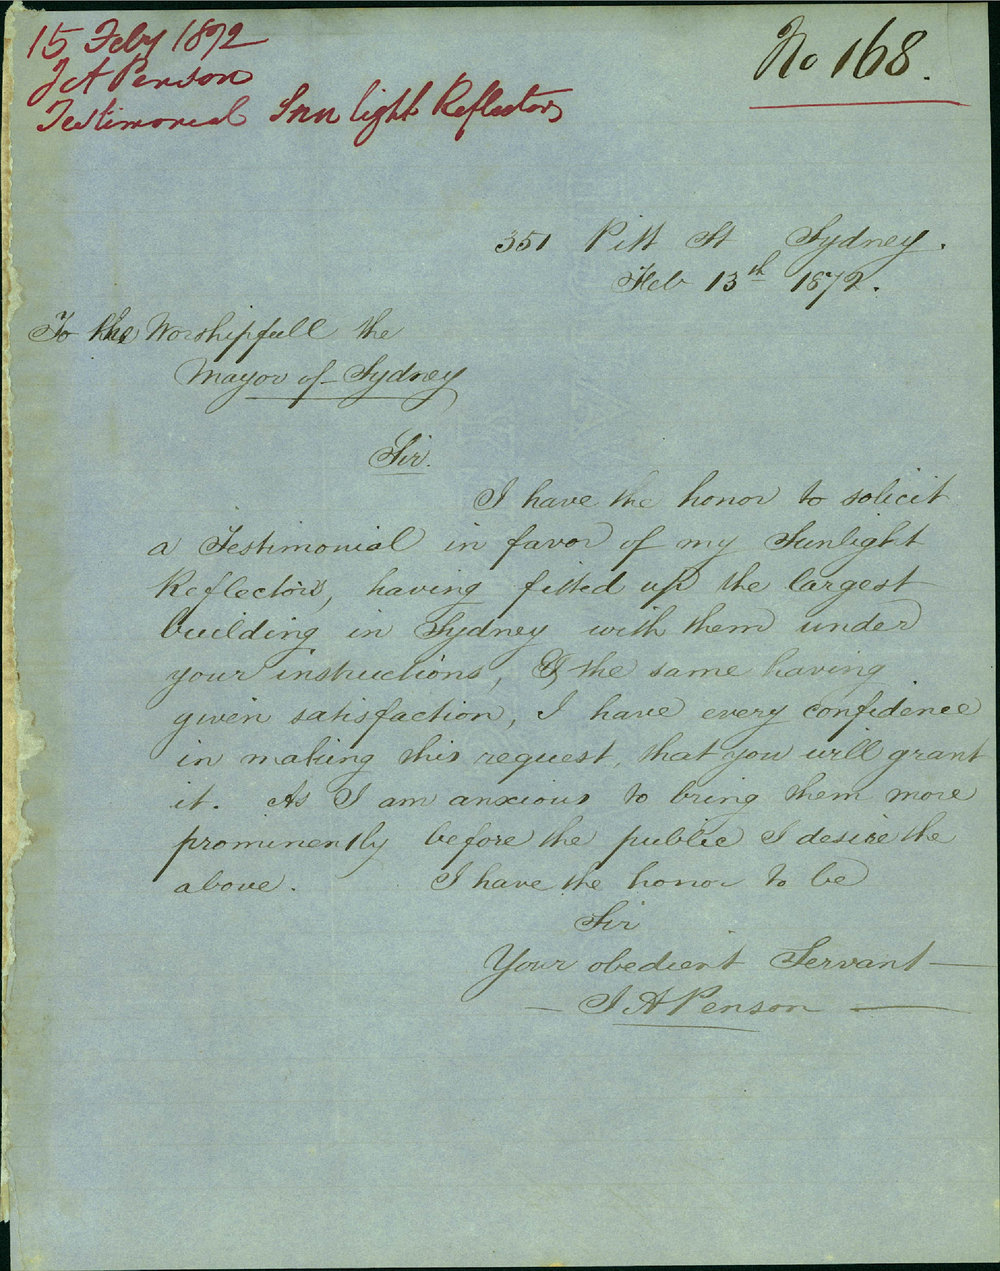 15 Feby 1872
J A Penson
Testimonial Sun light Reflectors
No 168.
351 Pitt St Sydney.
Feb 13th 1872.
To the Worshipfull the
Mayor of Sydney
Sir.
I have the honor to solicit
a Testimonial in favor of my Sunlight
Reflectors, having fitted up the largest
building in Sydney with them under
your instructions, & the same having
given satisfaction, I have every confidence
in making this request, that you will grant
it. As I am anxious to bring them more
prominently before the public I desire the
above. I have the honor to be
Sir
Your obedient Servant
J A Penson